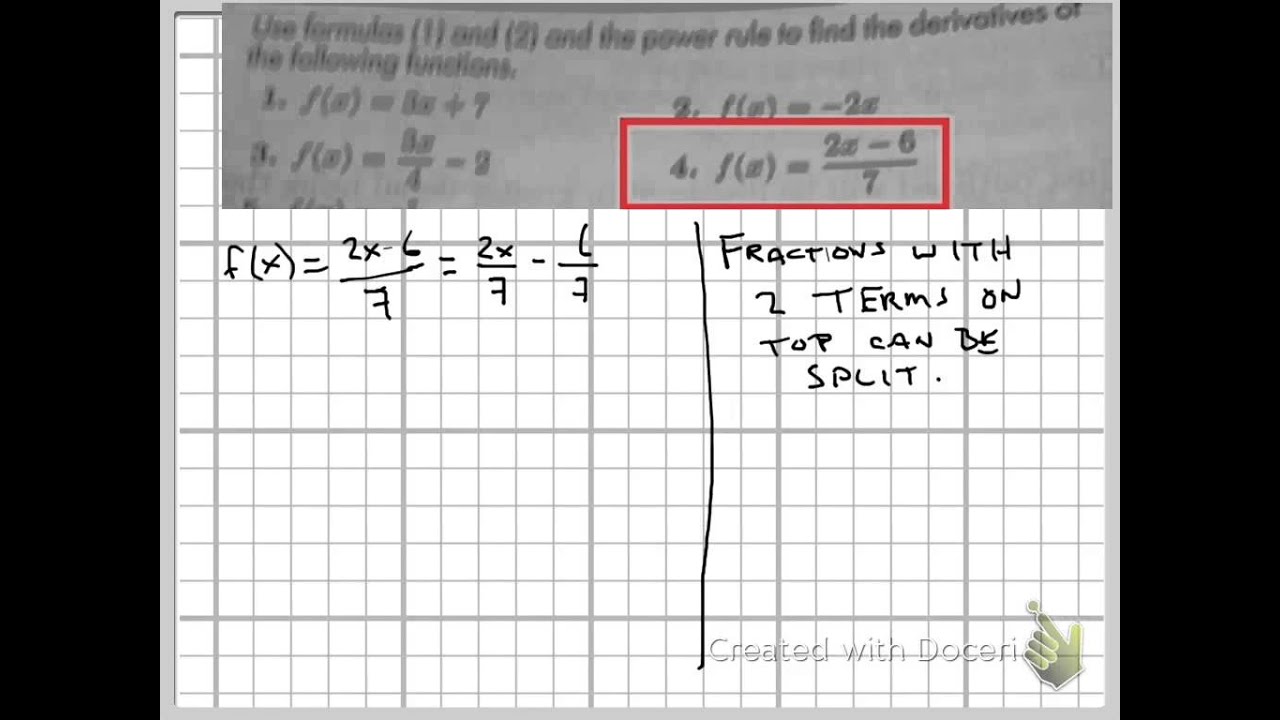 Use formulas (1) and (2) and the power rule to find the derivatives of
the following functions.
1. f(x) = 3x + 7
2. f(x) = −2x
3. f(x) = 3x/4 − 2
4. f(x) = 2x − 6/7
f(x) = 2x-6/7 = 2x/7 - 6/7
FRACTIONS WITH
2 TERMS ON
TOP CAN BE
SPLIT.
Created with Doceri